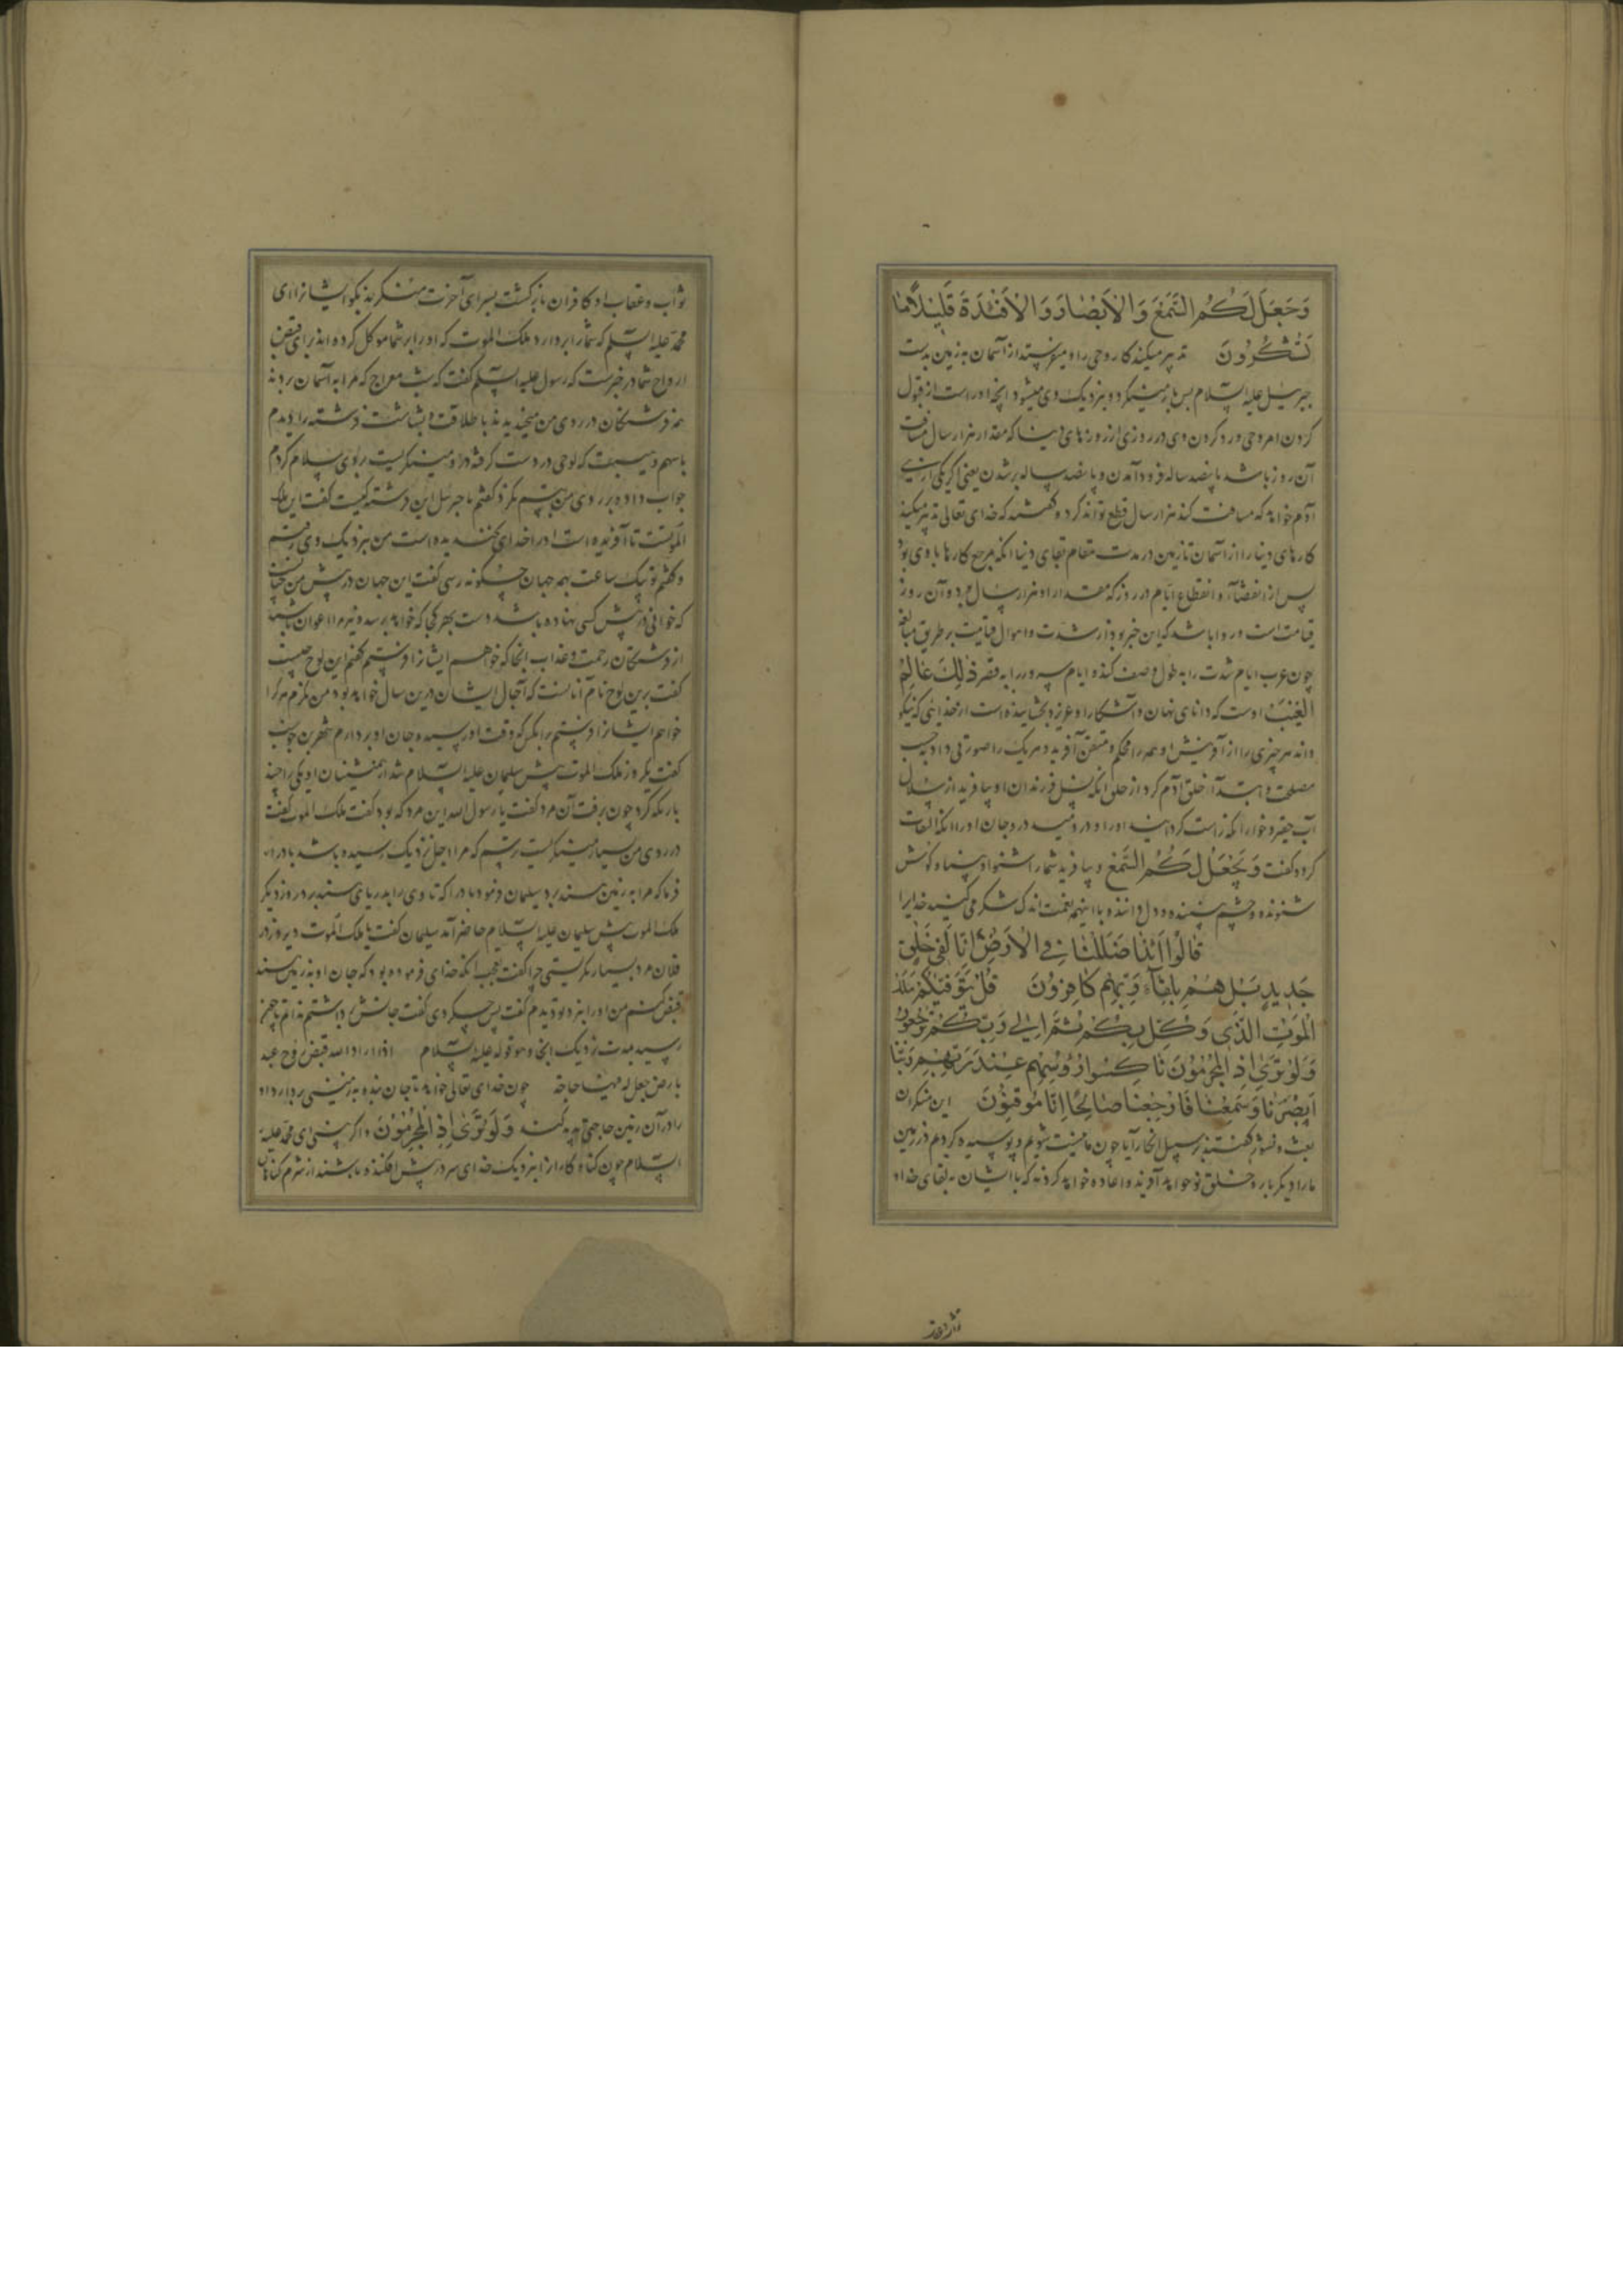 وَجَعَلَ لَكُمُ السَّمْعَ وَالْأَبْصَارَ وَالْأَفْئِدَةَ قَلِيلًا مَا
تَشْكُرُونَ تدبیر میکند کار وحی را و میفرستد از آسمان به زمین بدست
جبرئیل علیه السلام پس باز میگردد و بنزدیک وی میشود آنچه او راست از قبول
کردن امر وحی و رد کردن وی در روزی از روزهای دنیا که مقدار هزار سال مسافت
آن روز باشد پانصد ساله فرود آمدن و پانصد ساله بر شدن یعنی اگر یکی از بنی
آدم خواهد که مسافت کند هزار سال قطع تواند کرد و گفتند که خدای تعالی تدبیر میکند
کارهای دنیا را از آسمان تا زمین در مدت مقام بقای دنیا آنکه مرجع کارها با وی بود
پس از انقضاء و انقطاع ایام در روز که مقدار او هزار سال بود و آن روز
قیامت است و روا باشد که این خبر بود از شدت و اهوال قیامت بر طریق مبالغه
چون عرب ایام شدت را به طول وصف کند و ایام سرور را به قصر ذٰلِكَ عَالِمُ
الْغَيْبِ اوست که دانای نهان و آشکارا و عزیز و بخشاینده است از خدایی که نیکو
داند هر چیزی را از آفرینش او همه را محکم و متقن آفرید و هر یک را صورتی داد به حسب
مصلحت و ابتداء خلق آدم کرد از خلق آنکه نسل فرزندان او بیافرید از سلال
آب حقیر و خوار آنکه راست کرد او را و در دمید در و جان او را آنکه التفات
کرد و گفت وَيَجْعَلُ لَكُمُ السَّمْعَ و بیافرید شما را شنوا و بینا و گوش
شنونده و چشم بیننده و دل داننده و با اینهمه نعمت اندک شکر می کنید خدایرا
قَالُوا أَئِذَا ضَلَلْنَا فِي الْأَرْضِ إِنَّا لَفِي خَلْقٍ
جَدِيدٍ بَلْ هُمْ بِلِقَاءِ رَبِّهِمْ كَافِرُونَ قُلْ يَتَوَفَّيٰكُمْ مَلَكُ
الْمَوْتِ الَّذِي وُكِّلَ بِكُمْ ثُمَّ إِلَى رَبِّكُمْ تُرْجَعُونَ
وَلَوْ تَرَى إِذِ الْمُجْرِمُونَ نَاكِسُوا رُؤُسِهِمْ عِنْدَ رَبِّهِمْ رَبَّنَا
أَبْصَرْنَا وَسَمِعْنَا فَارْجِعْنَا صَالِحًا إِنَّا مُوقِنُونَ این منکران
بعث و نشور گفتند بر سبیل انکار آیا چون ما نیست شویم و پوسیده گردیم در زمین
ما را دیگر بار و خلق نو خواهد آفرید و اعاده خواهد کرد نه که با ایشان به بقای خدا و
ثواب و عقاب او کافران بازگشت بسرای آخرت منکرند بگو ایشانرا ای
محمد علیه السلم که شما را بردارد ملک الموت که او را بر شما موکل کرده اند برای قبض
ارواح شما در خبرست که رسول علیه السلم گفت که شب معراج که مرا به آسمان بردند
همه فرشتگان در روی من میخندیدند با طلاقت و بشاشت فرشته را دیدم
با سهم و هیبت که لوحی در دست گرفته در او مینگریست بر وی سلام کردم
جواب داد و بر روی من تبسم نکرد گفتم یا جبرئیل این فرشته کیست گفت این ملک
الموتست تا آفریده است او را خدای نخندیده است من بنزدیک وی رفتم
و گفتم تو بیک ساعت بهمه جهان چگونه رسی گفت این جهان در پیش من چنانست
که خوانی در پیش کسی نهاده باشد دست بهر کجا که خواهد برسد و نیز مرا اعوان باشند
از فرشتگان رحمت و عذاب آنجا که خواهم ایشانرا فرستم گفتم این لوح چیست
گفت برین لوح نام آنانست که آجال ایشان درین سال خواهد بود من نگرم هرکرا
خواهم ایشانرا فرستم با آنکس که وقت او رسید و جان او بردارم شهر بن حوشب
گفت یکروز ملک الموت پیش سلیمان علیه السلام شد از همنشینان او یکی را چند
بار نگه کرد چون برفت آن مرد گفت یا رسول الله این مرد که بود گفت ملک الموت گفت
در روی من بسیار مینگریست ترسم که مرا اجل نزدیک رسیده باشد باد را
فرما که مرا به زمین سند برد سلیمان فرمود باد را که تا وی را بدریای سند برد روز دیگر
ملک الموت پیش سلیمان علیه السلام حاضر آمد سلیمان گفت یا ملک الموت دیروز در
فلان مرد بسیار نگریستی چرا گفت بعجب آنکه خدای فرموده بود که جان او بزمین سند
قبض کنم من او را نزد تو دیدم گفت پس چه کردی گفت جانش برداشتم
رسید مدت نزدیک آنجا و هو قوله علیه السلام اذا اراد الله قبض روح عبد
بارض جعل له فیها حاجة چون خدای تعالی خواهد تا جان بنده به زمینی بردارد او
را در آن زمین حاجتی پدید کند وَلَوْ تَرَى إِذِ الْمُجْرِمُونَ و اگر بینی ای محمد علیه
السلام چون گناه کاران بنزدیک خدای سر در پیش افکنده باشند از شرم گناهان